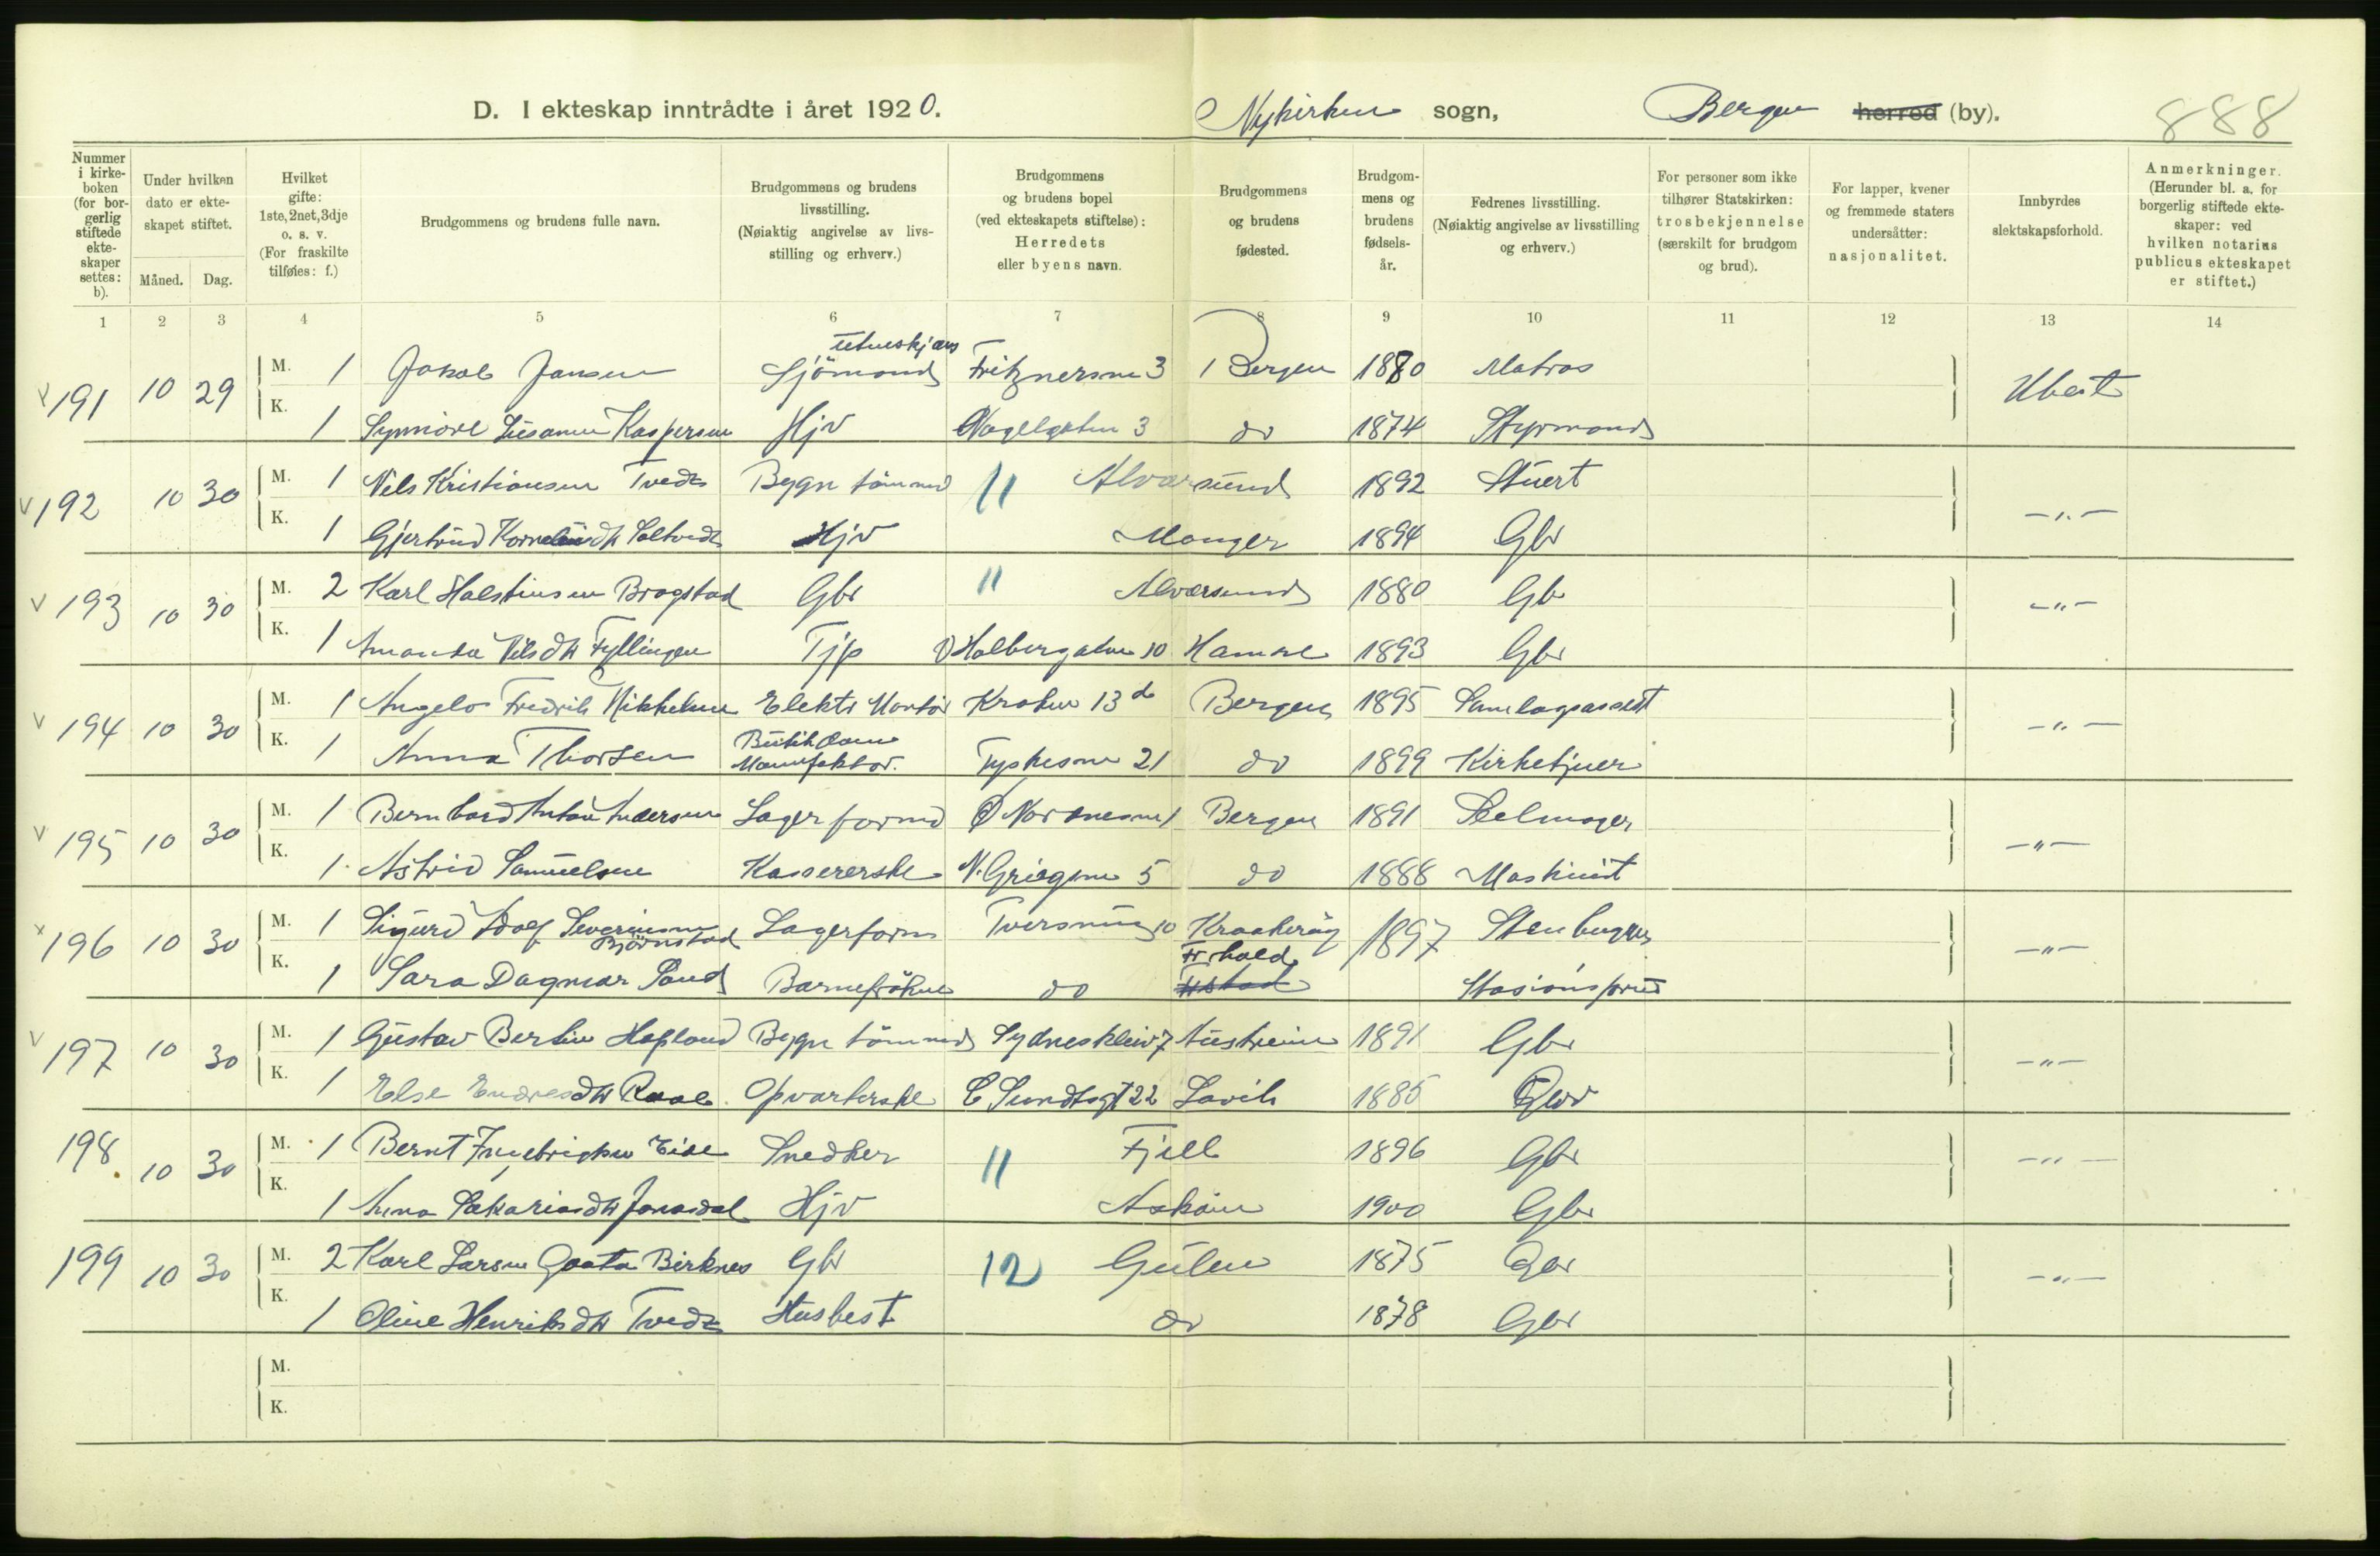 D. I ekteskap inntrådte i året 1920. Nykirken sogn, Bergen herred (by). 888
Nummer i kirkeboken (for borgerlig stiftede ekteskaper settes: b).
Under hvilken dato er ekteskapet stiftet. Måned. Dag.
Hvilket gifte: 1ste, 2net, 3dje o. s. v. (For fraskilte tilføies: f.)
Brudgommens og brudens fulle navn.
Brudgommens og brudens livsstilling. (Nøiaktig angivelse av livsstilling og erhverv.)
Brudgommens og brudens bopel (ved ekteskapets stiftelse): Herredets eller byens navn.
Brudgommens og brudens fødested.
Brudgommens og brudens fødselsår.
Fedrenes livsstilling. (Nøiaktig angivelse av livsstilling og erhverv.)
For personer som ikke tilhører Statskirken: trosbekjennelse (særskilt for brudgom og brud).
For lapper, kvener og fremmede staters undersåtter: nasjonalitet.
Innbyrdes slektskapsforhold.
Anmerkninger. (Herunder bl. a. for borgerlig stiftede ekteskaper: ved hvilken notarius publicus ekteskapet er stiftet.)
1 2 3 4 5 6 7 8 9 10 11 12 13 14
utenskjærs
191 10 29 M. 1 Jakob Jansen Sjömand Fritznersm 3 Bergen 1880 Matros Ubesl
K. 1 Synnöve Susanne Kaspersen Hjv Nagelgaten 3 do 1874 Styrmand
192 10 30 M. 1 Nels Kristiansen Tvedt Bygn tömmerm 11 Alversund 1892 Stuert -"-
K. 1 Gjertrud Korneliusdtr Soltvedt Hjv Manger 1894 Gbr
193 10 30 M. 2 Karl Halstensen Brogstad Gbr 11 Alversund 1880 Gbr -"-
K. 1 Amanda Nilsdtr Fyllingen Tjp Holbergsalm 10 Hamre 1893 Gbr
194 10 30 M. 1 Angelo Fredrik Mikkelsen Elektr Montör Krohn 13 Bergen 1895 Samlagsassist -"-
K. 1 Anna Thorsen Butikdame Manufaktur. Tyskesm 21 do 1899 Kirketjner
195 10 30 M. 1 Bernhard Anton Andersen Lagerformd Ø Nordnesm 1 Bergen 1891 Seilmager -"-
K. 1 Astrid Samuelsen Kassererske N. Griegsm 5 do 1888 Maskinist
196 10 30 M. 1 Sigurd Adolf Severinsen Björnstad Lagerform Tversmug 10 Kraakeröy 1897 Stenhugger -"-
K. 1 Sara Dagmar Sand Barnefröken do Frhald Stasionsform
197 10 30 M. 1 Gustav Bertin Hopland Bygn tömmerm Sydneskleiv 7 Austreim 1891 Gbr -"-
K. 1 Else Endresdtr Opvarterske E Sundtsgt 22 Lavik 1885 Gbr
198 10 30 M. 1 Bernt Eide Snedker 11 Fjell 1896 Gbr -"-
K. 1 Anna Sakariasdtr Jonasdal Hjv Asköen 1900 Gbr
199 10 30 M. 2 Karl Larsen Birknes Gbr 12 Gulen 1875 Gbr -"-
K. 1 Oline Henriksdtr Tvedt Husbest do 1878 Gbr
M.
K.